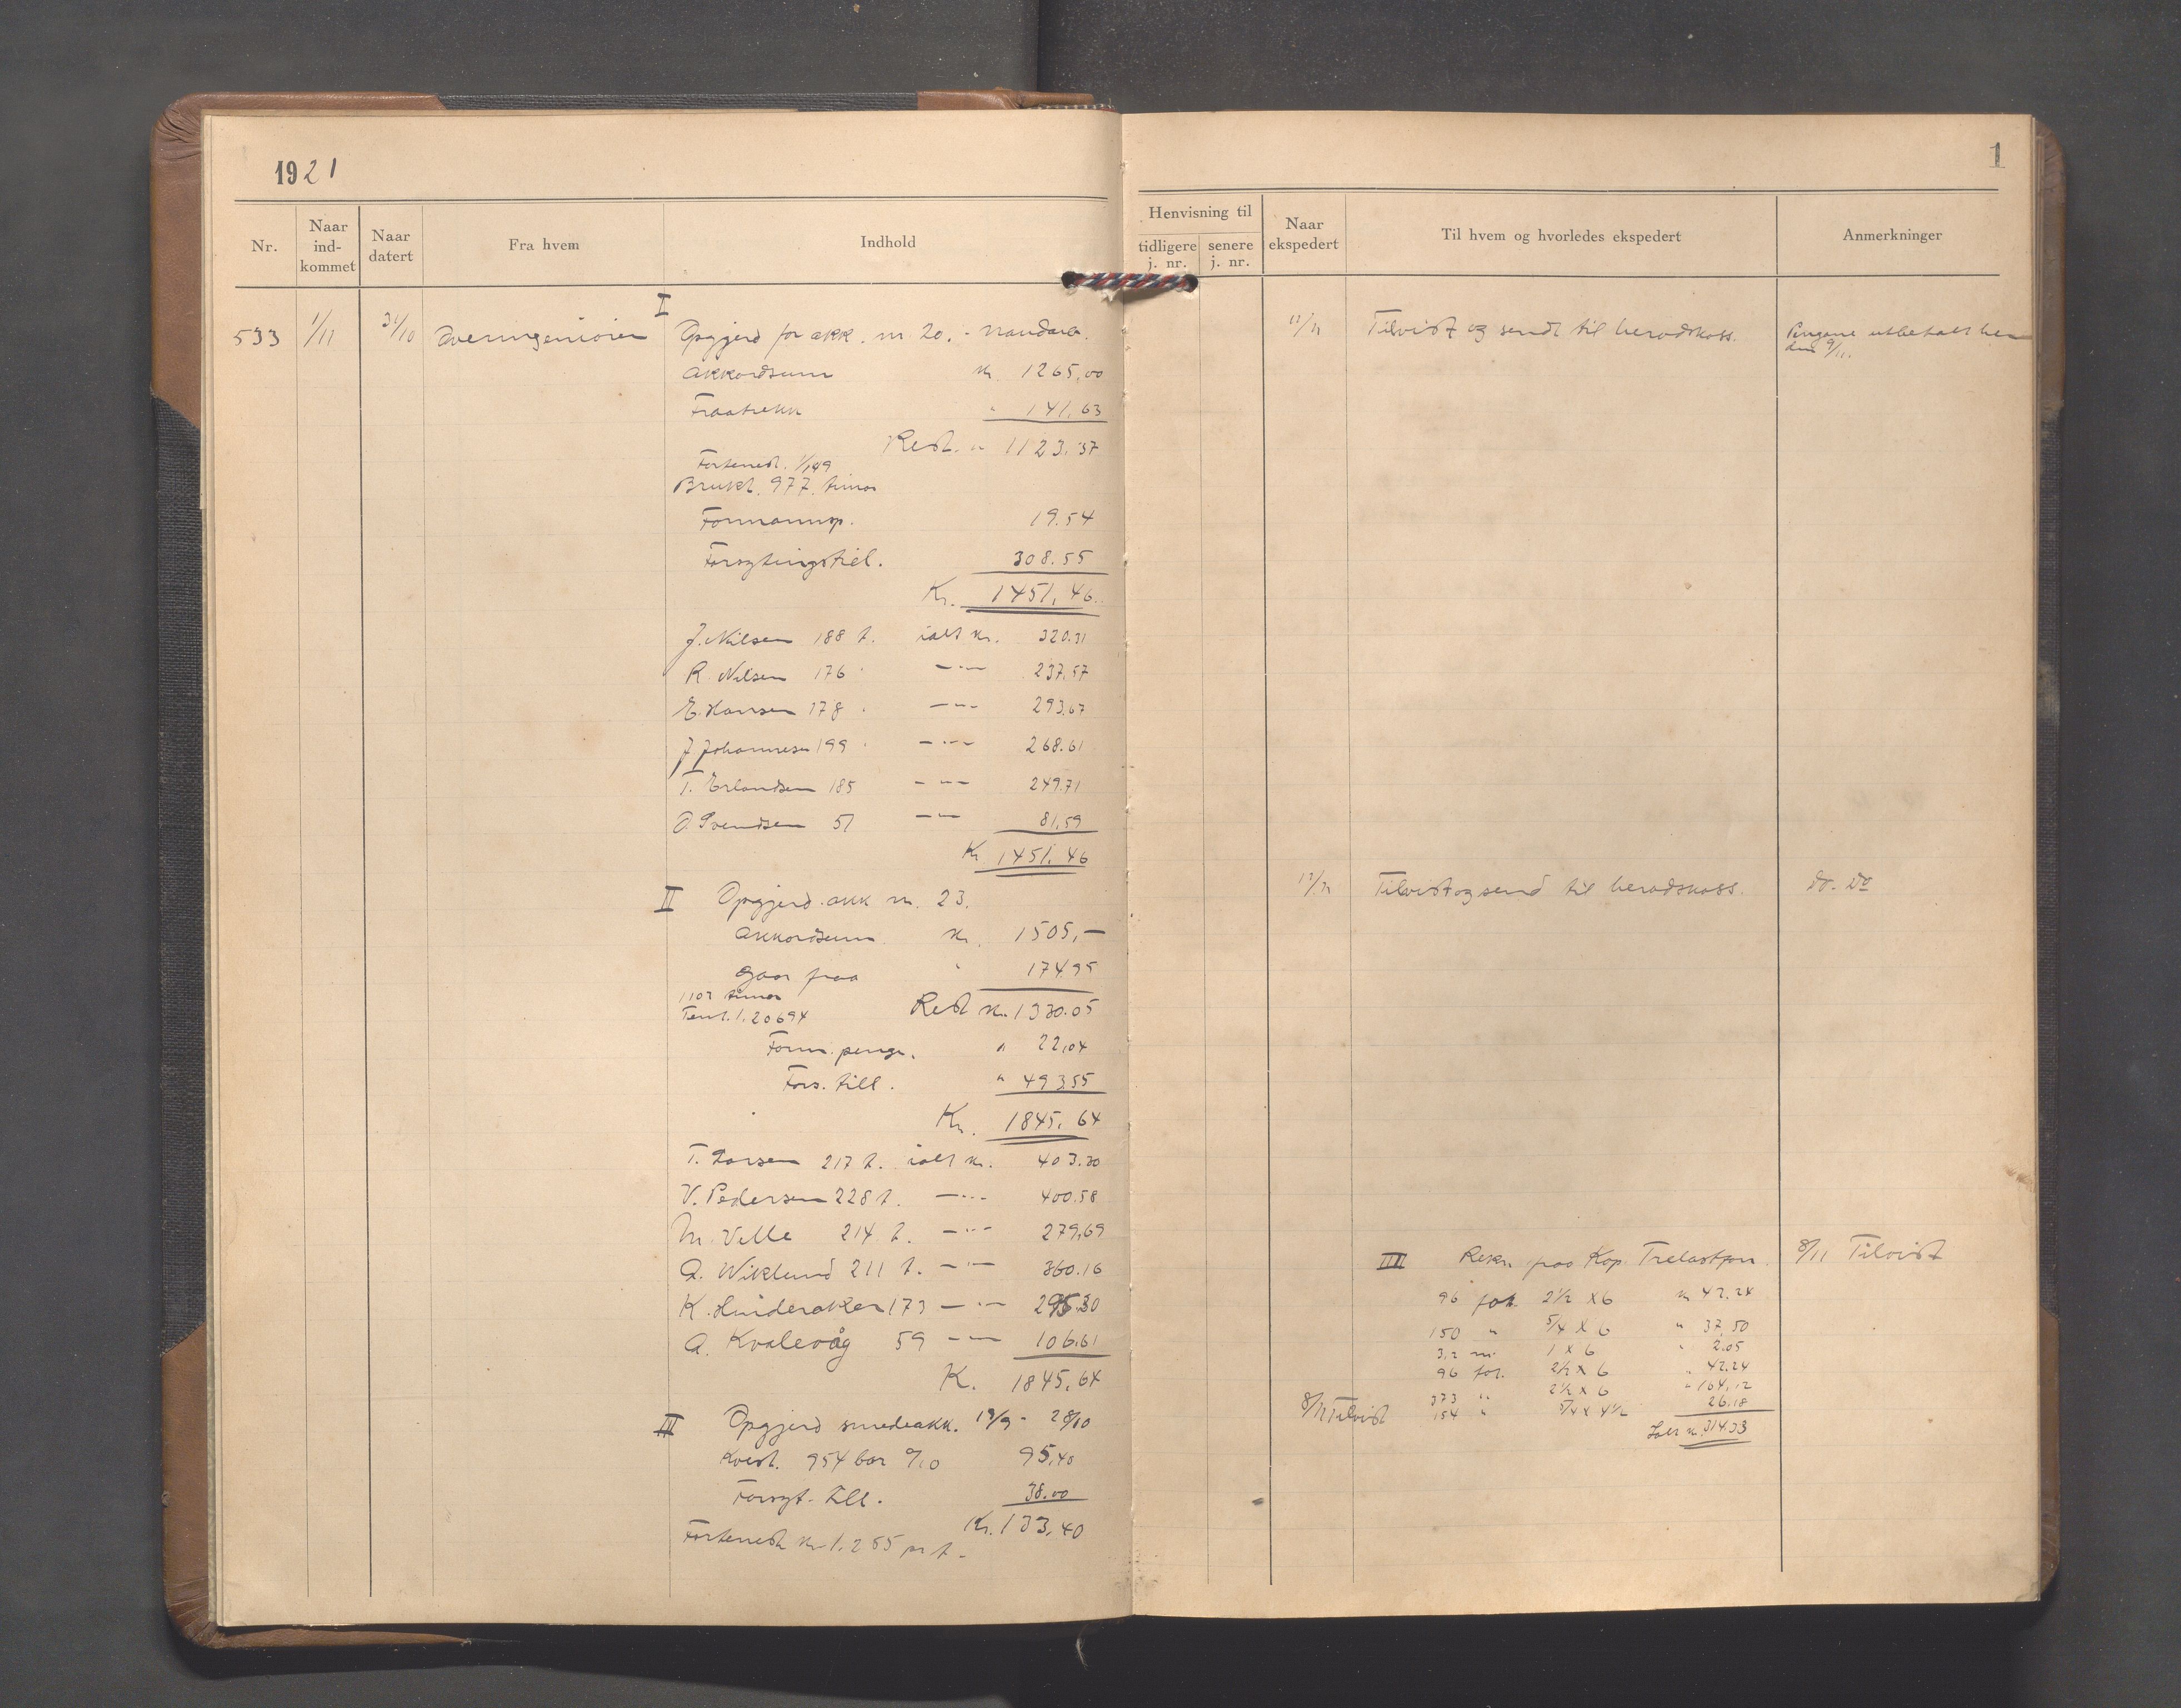 1921
Nr.
Naar ind-kommet
Naar datert
Fra hvem
Indhold
533 1/11 31/10 Overingeniören
I
Opgjerd for akk. nr 20. -
Akkordsum kr. 1265,00
Fraatrekk " 141,63
Rest. " 1123,37
Fortenest. 1/149
Brukt. 977. timar
Formannsp. 19.54
Forsytingstil. 308.55
Kr. 1451,46.
J. Nilsen 188 t. ialt kr. 320.31
R. Nilsen 176 " — " — 237,57
E. Hansen 178 " — " — 293,67
J Johannesen 199 " — " — 268.61
T. Erlandsen 185 — " — 249.71
O. Svendsen 51 — " — 81,59
Kr 1451,46
II Opgjerd. akk nr. 23.
Akkordsum kr. 1505,—
Gaar fraa " 174.95
1102 timar
Tent. 1.20694
Rest kr. 1330.05
Form. penge. " 22,04
Fors. till. " 493.55
Kr. 1845,64
T. Larsen 217 t. ialt kr. 403.30
V. Pedersen 228 t. — " — 400.58
M. Velle 214 t. — " — 279,69
A. Wiklund 211 t. — " — 360.16
K. Hinderaker 173 — " — 295.30
A. Kvalevåg 59 — " — 106.61
K. 1845,64
III Opgjerd smedeakk. 19/9 - 28/10
Kvest. 954 bor 0/10 95,40
Forsyt. till. 38.00
Kr. 133,40
Fortenest kr 1.255 pr t.
1
Henvisning til
tidligere j. nr.
senere j. nr.
Naar ekspedert
Til hvem og hvorledes ekspedert
Anmerkninger
12/11 Tilvist og sendt til heradskass. Pengane utbetalt her
den 9/11.
12/11 Tilvist og send til heradskass. do. do
IIII Rekn. fraa Kop. Trelastforr. 8/11 Tilvist
96 fot. 2½ x 6 kr 42.24
150 " 5/4 x 6 " 37,50
3,2 m. 1 x 6 " 2.05
96 fot. 2½ x 6 " 42.24
373 " 2½ x 6 " 164,12
8/11 Tilvist 154 " 5/4 x 4½ 26.18
Ialt kr. 314.33